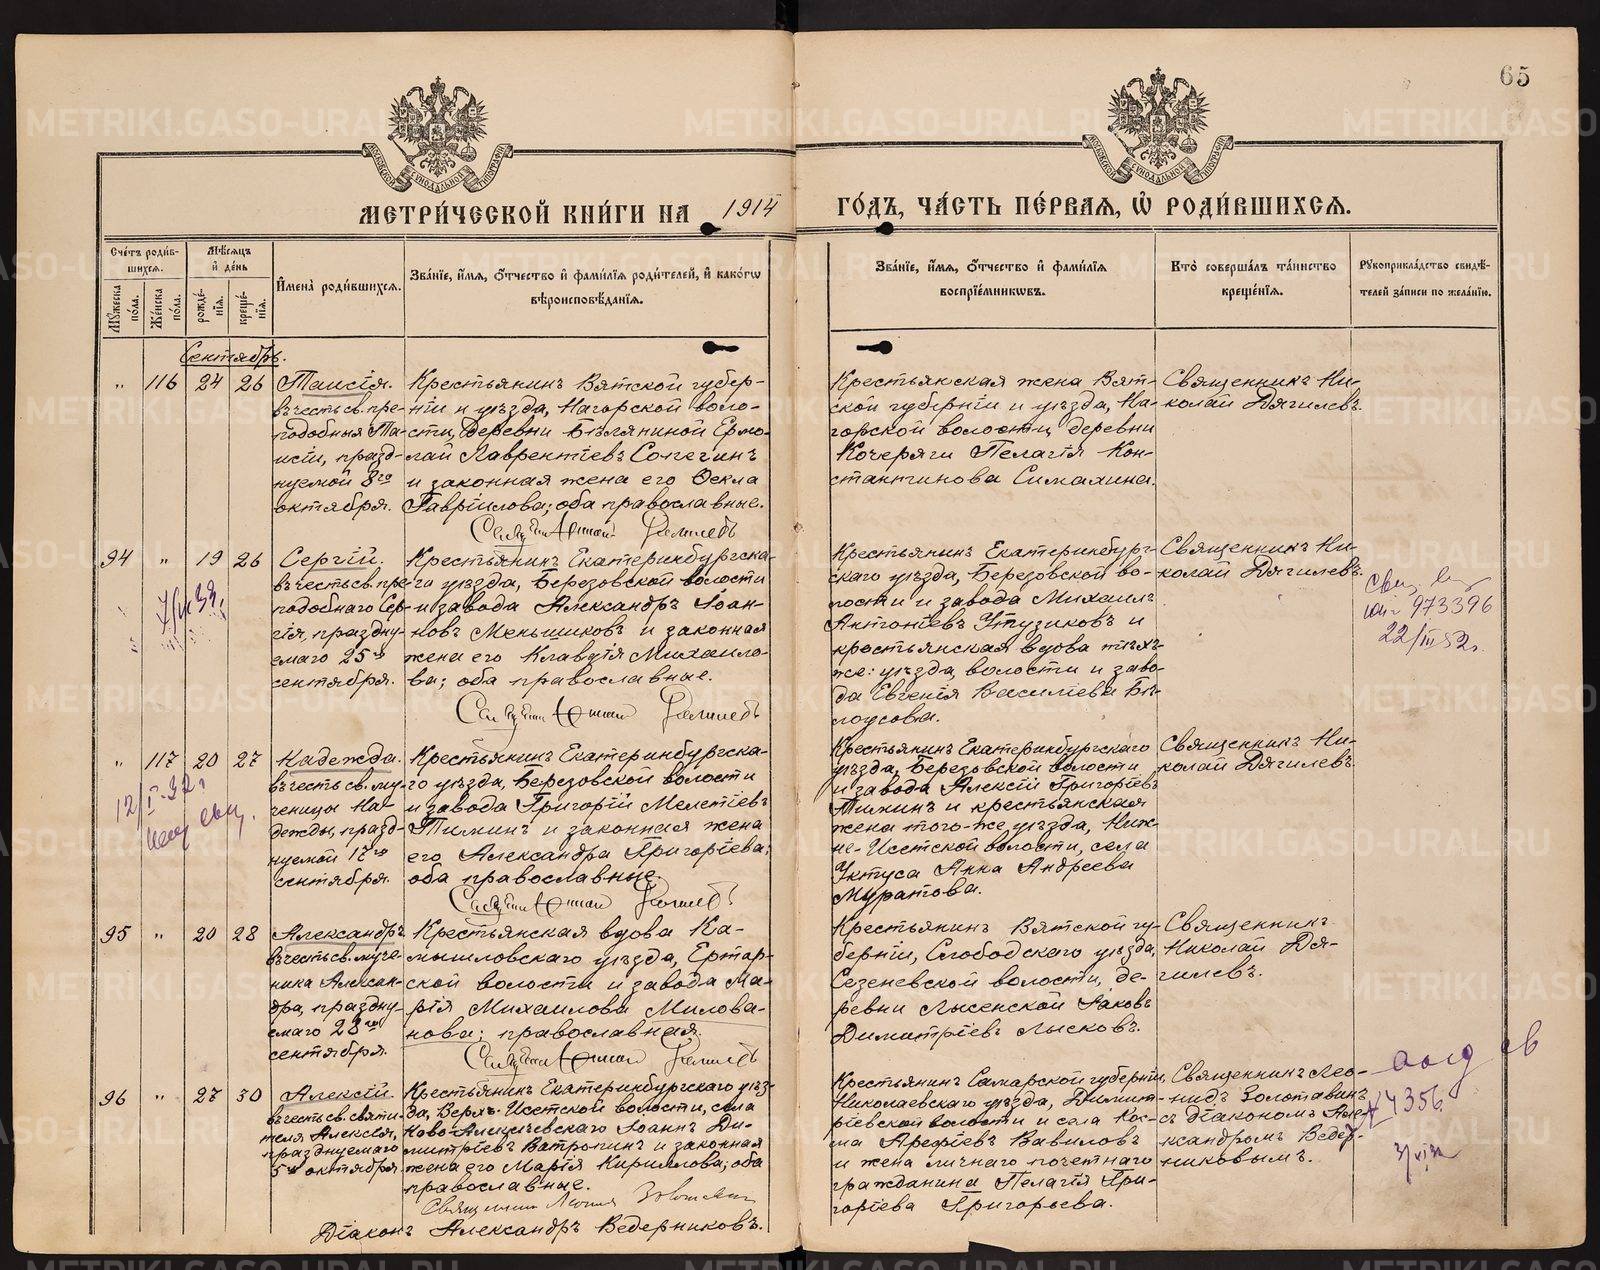 65
МЕТРИ́ЧЕСКОЙ КНИ́ГИ НА 1914 ГО́ДЪ, ЧА́СТЬ ПЕ́РВАЯ, Ѽ РОДИ́ВШИХСЯ.
Сче́тъ роди́в-
шихся.
Мѣ́сяцъ
и҆ де́нь
Му́жеска
по́ла.
Же́нска
по́ла.
рожде́-
нїя.
креще́-
нїя.
И҆мена̀ роди́вшихся.
Зва́нїе, и҆́мя, ѻ҆́тчество и҆ фами́лїя роди́телей, и҆ како́гѡ
вѣроисповѣ́данїя.
Зва́нїе, и҆́мя, ѻ҆́тчество и҆ фами́лїя
воспрїе́мникѡвъ.
Кто̀ соверша́лъ та́инство
креще́нїя.
Рꙋкоприкла́дство свидѣ́-
телей за́писи по жела́нїю.
Сентябрь.
" 116 24 26
Таисія.
въ честь св. пре-
подобныя Та-
исіи, празд-
нуемой 8го
октября.
Крестьянинъ Вятской губер-
ніи и уѣзда, Нагорской воло-
сти, деревни Бѣляниной Ермо-
лай Лаврентіевъ Сопегинъ
и законная жена его Ѳекла
Гавріилова; оба православные.
Крестьянская жена Вят-
ской губерніи и уѣзда, На-
горской волости, деревни
Кочеряги Пелагія Кон-
стантинова Симахина.
Священникъ Ни-
колай Дягилевъ.
94 " 19 26
Сергій.
въ честь св. пре-
подобнаго Сер-
гія, праздну-
емаго 25го
сентября.
Крестьянинъ Екатеринбургска-
го уѣзда, Березовской волости
и завода Александръ Іоан-
новъ Меньшиковъ и законная
жена его Клавдія Михаило-
ва; оба православные.
Крестьянинъ Екатеринбург-
скаго уѣзда, Березовской во-
лости и завода Михаилъ
Антоніевъ Утузиковъ и
крестьянская вдова тѣхъ-
же: уѣзда, волости и заво-
да Евгенія Василіева Бѣ-
лоусова.
Священникъ Ни-
колай Дягилевъ.
973396
22/III 52г.
" 117 20 27
Надежда.
въ честь св. му-
ченицы На-
дежды, празд-
нуемой 17го
сентября.
Крестьянинъ Екатеринбургска-
го уѣзда, Березовской волости
и завода Григорій Мелетіевъ
Тимкинъ и законная жена
его Александра Григоріева;
оба православные.
Крестьянинъ Екатеринбургскаго
уѣзда, Березовской волости
и завода Алексій Григоріевъ
Тимкинъ и крестьянская
жена того-же уѣзда, Ниж-
не-Исетской волости, села
Уктуса Анна Андреева
Муратова.
Священникъ Ни-
колай Дягилевъ.
95 " 20 28
Александръ
въ честь св. муче-
ника Алексан-
дра, праздну-
емаго 28го
сентября.
Крестьянская вдова Ка-
мышловскаго уѣзда, Ертар-
ской волости и завода Ма-
рія Михаилова Милова-
нова; православная.
Крестьянинъ Вятской гу-
берніи, Слободского уѣзда,
Сезеневской волости, де-
ревни Лысенской Іаковъ
Димитріевъ Лысковъ.
Священникъ
Николай Дя-
гилевъ.
96 " 27 30
Алексій.
въ честь св. святи-
теля Алексія,
празднуемаго
5го октября.
Крестьянинъ Екатеринбургскаго уѣз-
да, Верхъ-Исетской волости, села
Ново-Алексѣевскаго Іоаннъ Ди-
митріевъ Ватропинъ и законная
жена его Марія Кириллова; оба
православные.
Діаконъ Александръ Ведерниковъ.
Крестьянинъ Самарской губерніи,
Николаевскаго уѣзда, Димит-
ріевской волости и села Кос-
ма Ареѳіевъ Вавиловъ
и жена личнаго почетнаго
гражданина Пелагія Гри-
горіева Григорьева.
Священникъ Лео-
нидъ Золотавинъ
съ діакономъ Але-
ксандромъ Ведер-
никовымъ.